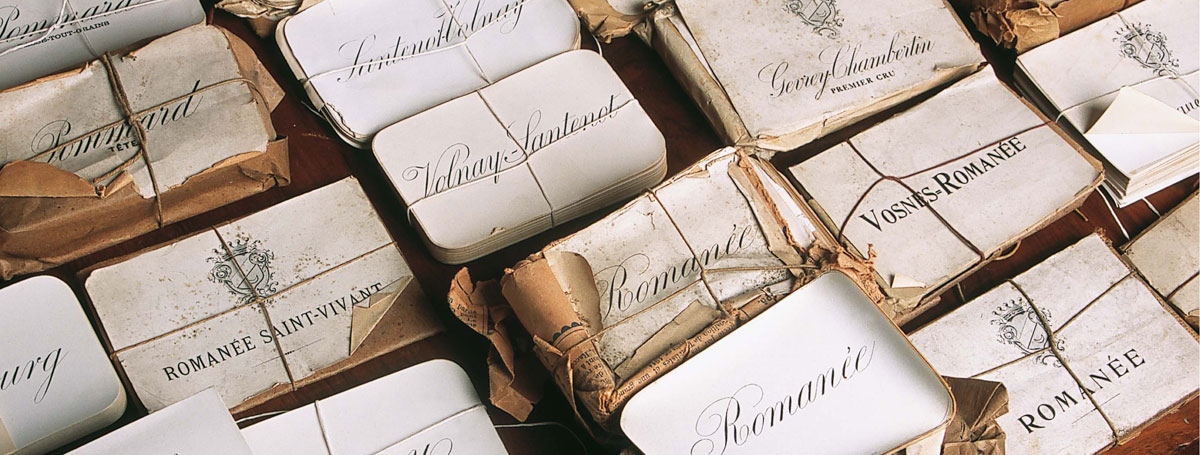 Pommard
-TOUT-GRAINS
Santenot-Volnay
Gevrey-Chambertin
PREMIER CRU
Pommard
TÊTE
Volnay-Santenot
VOSNES=ROMANÉE
Romanée
ROMANÉE SAINT-VIVANT
urg
Romanée
ROMANÉE